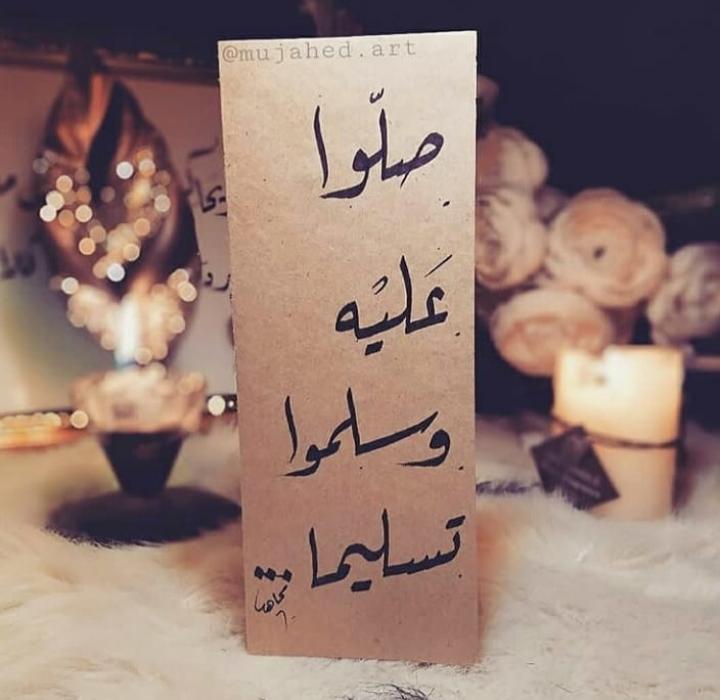 @mujahed.art
صلّوا
عَليْه
وسلموا
تسليما